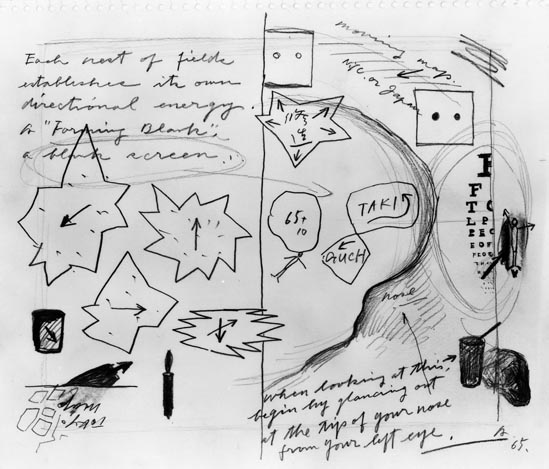 Each nest of fields
establishes its own
directional energy.
A "Forming Blank",
a blank screen.
moving map.
NYC. or Japan
65+
10
TAKI
GUCH
F
T
L P
P E C
E D F
nose
when looking at this,
begin by glancing out
at the tip of your nose
from your left eye.
A
65.